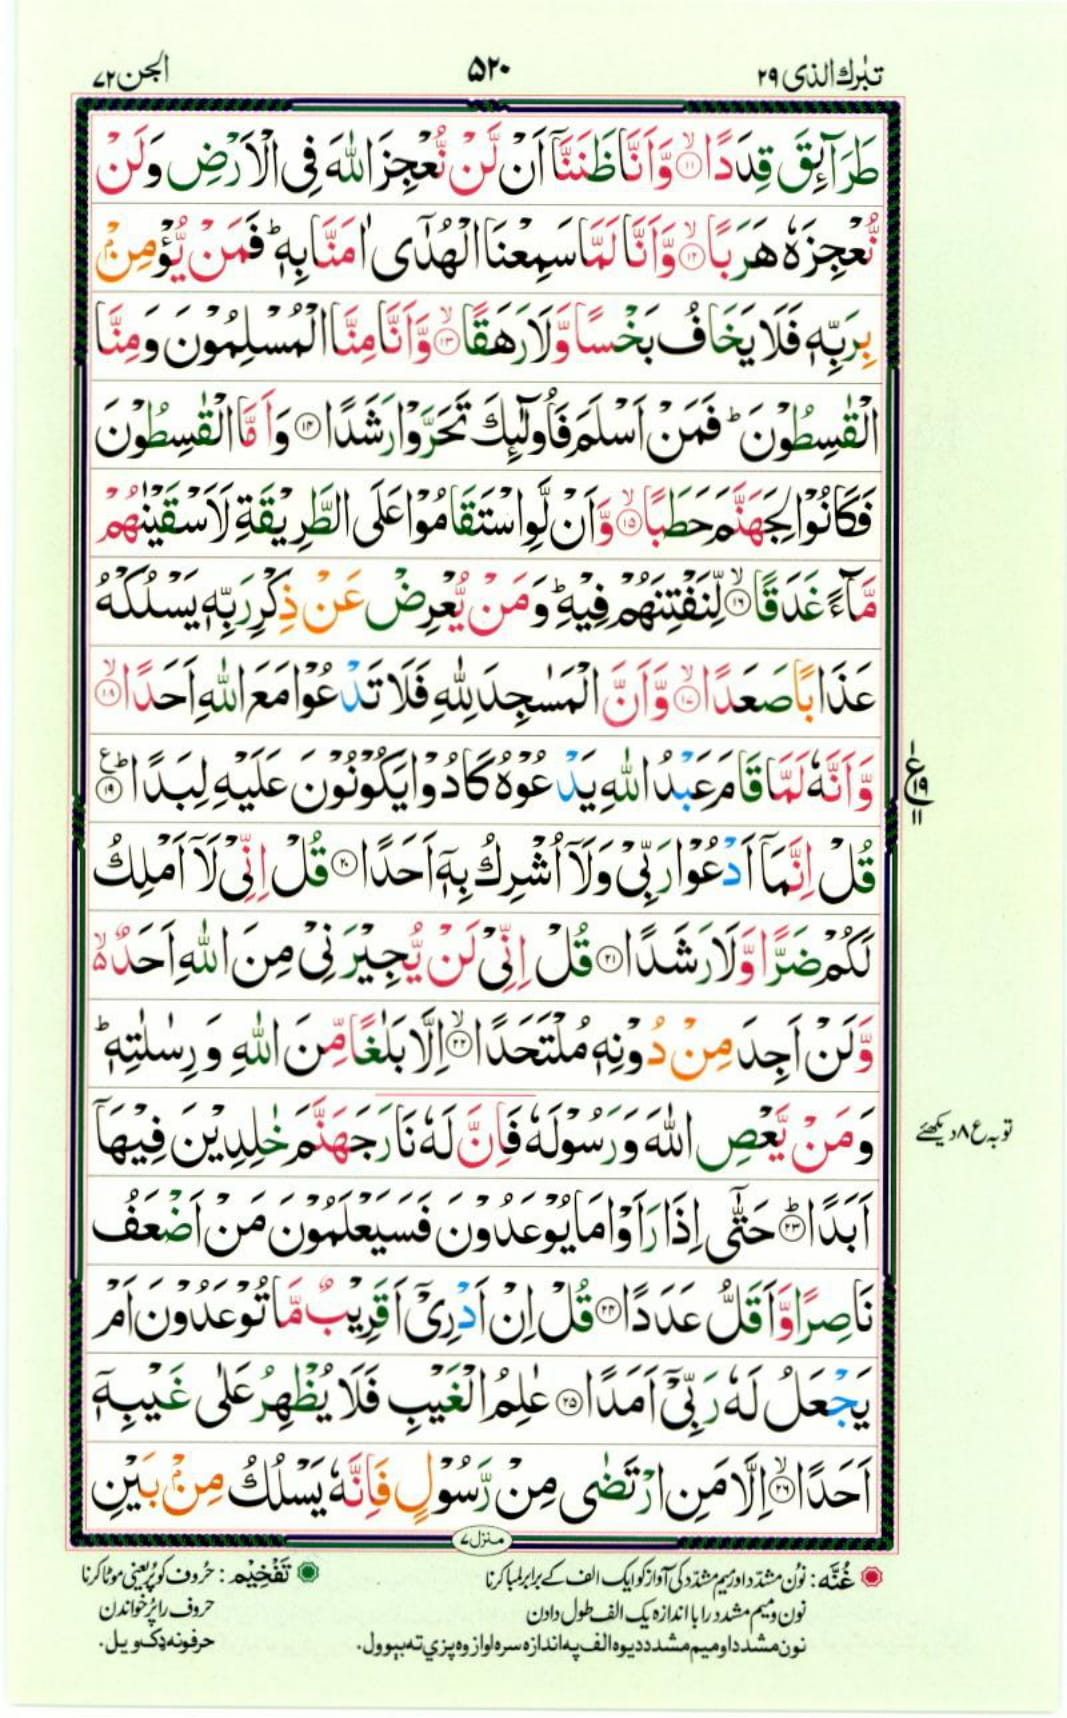 تبٰرك الذى ٢٩
٥٢٠
الجن ٧٢
طَرَآئِقَ قِدَدًا ۙ﴿١١﴾ وَّاَنَّا ظَنَنَّاۤ اَنْ لَّنْ نُّعْجِزَ اللّٰهَ فِى الْاَرْضِ وَلَنْ
نُّعْجِزَهٗ هَرَبًا ۙ﴿١٢﴾ وَّاَنَّا لَمَّا سَمِعْنَا الْهُدٰٓى اٰمَنَّا بِهٖ ؕ فَمَنْ يُّؤْمِنْۢ
بِرَبِّهٖ فَلَا يَخَافُ بَخْسًا وَّلَا رَهَقًا ۙ﴿١٣﴾ وَّاَنَّا مِنَّا الْمُسْلِمُوْنَ وَمِنَّا
الْقٰسِطُوْنَ ؕ فَمَنْ اَسْلَمَ فَاُولٰٓئِكَ تَحَرَّوْا رَشَدًا ﴿١٤﴾ وَاَمَّا الْقٰسِطُوْنَ
فَكَانُوْا لِجَهَنَّمَ حَطَبًا ۙ﴿١٥﴾ وَّاَنْ لَّوِاسْتَقَامُوْا عَلَى الطَّرِيْقَةِ لَاَسْقَيْنٰهُمْ
مَّآءً غَدَقًا ۙ﴿١٦﴾ لِّنَفْتِنَهُمْ فِيْهِ ؕ وَمَنْ يُّعْرِضْ عَنْ ذِكْرِ رَبِّهٖ يَسْلُكْهُ
عَذَابًا صَعَدًا ۙ﴿١٧﴾ وَّاَنَّ الْمَسٰجِدَ لِلّٰهِ فَلَا تَدْعُوْا مَعَ اللّٰهِ اَحَدًا ۙ﴿١٨﴾
وَّاَنَّهٗ لَمَّا قَامَ عَبْدُ اللّٰهِ يَدْعُوْهُ كَادُوْا يَكُوْنُوْنَ عَلَيْهِ لِبَدًا ؕ﴿١٩﴾
ع ١٩ ١١
قُلْ اِنَّمَاۤ اَدْعُوْا رَبِّىْ وَلَاۤ اُشْرِكُ بِهٖۤ اَحَدًا ﴿٢٠﴾ قُلْ اِنِّىْ لَاۤ اَمْلِكُ
لَكُمْ ضَرًّا وَّلَا رَشَدًا ﴿٢١﴾ قُلْ اِنِّىْ لَنْ يُّجِيْرَنِىْ مِنَ اللّٰهِ اَحَدٌ ۙ۬
وَّلَنْ اَجِدَ مِنْ دُوْنِهٖ مُلْتَحَدًا ۙ﴿٢٢﴾ اِلَّا بَلٰغًا مِّنَ اللّٰهِ وَرِسٰلٰتِهٖ ؕ
وَمَنْ يَّعْصِ اللّٰهَ وَرَسُوْلَهٗ فَاِنَّ لَهٗ نَارَ جَهَنَّمَ خٰلِدِيْنَ فِيْهَاۤ
توبہ ع ٨ دیکھئے
اَبَدًا ؕ﴿٢٣﴾ حَتّٰٓى اِذَا رَاَوْا مَا يُوْعَدُوْنَ فَسَيَعْلَمُوْنَ مَنْ اَضْعَفُ
نَاصِرًا وَّاَقَلُّ عَدَدًا ﴿٢٤﴾ قُلْ اِنْ اَدْرِىْۤ اَقَرِيْبٌ مَّا تُوْعَدُوْنَ اَمْ
يَجْعَلُ لَهٗ رَبِّىْۤ اَمَدًا ﴿٢٥﴾ عٰلِمُ الْغَيْبِ فَلَا يُظْهِرُ عَلٰى غَيْبِهٖۤ
اَحَدًا ۙ﴿٢٦﴾ اِلَّا مَنِ ارْتَضٰى مِنْ رَّسُوْلٍ فَاِنَّهٗ يَسْلُكُ مِنْۢ بَيْنِ
منزل ٧
غُنّه : نون مشدّد اور میم مشدّد کی آواز کو ایک الف کے برابر لمبا کرنا
نون و میم مشدد را با اندازہ یک الف طول دادن
نون مشدد او میم مشدد د یوه الف په اندازه سره اواز وه پزي ته بیوول.
تَفْخِیْم : حُروف کو پُر یعنی موٹا کرنا
حروف را پُر خواندن
حرفونه ډک ویل.